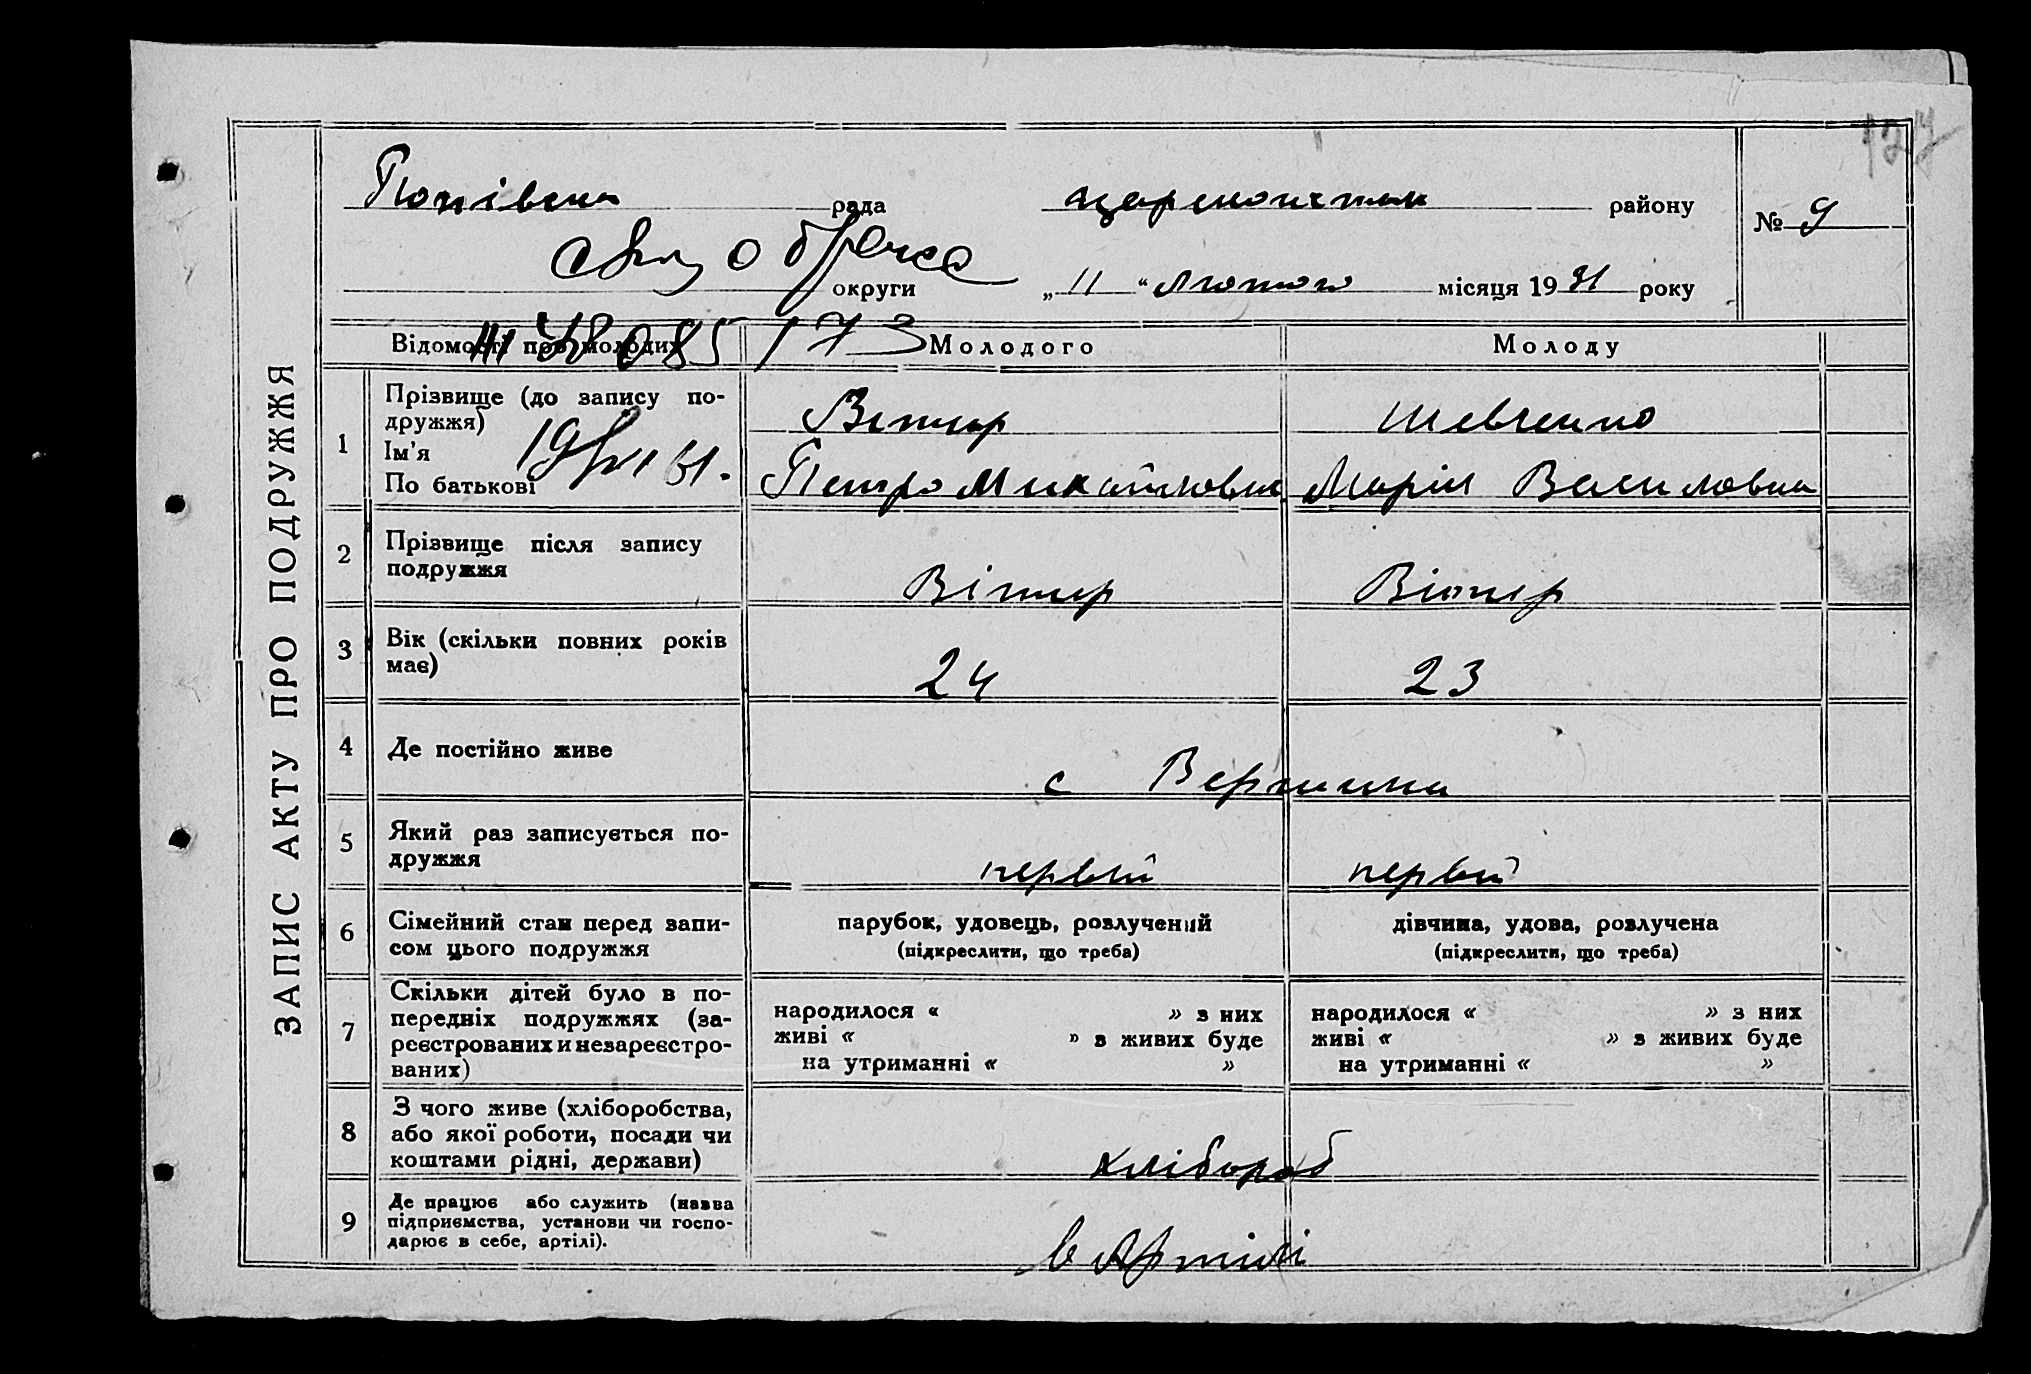 127
Попівська рада царичанськ району № 9
округи „ 11 “ лютого місяця 1931 року
173
Відомості про молодих Молодого Молоду
ЗАПИС АКТУ ПРО ПОДРУЖЖЯ
1 Прізвище (до запису по-
дружжя) Вітер Шевченко
Ім'я
По батькові Петро Михайлович Марія Василовна
2 Прізвище після запису
подружжя Вітер Вітер
3 Вік (скільки повних років
має) 24 23
4 Де постійно живе с Вершина
5 Який раз записується по-
дружжя первый первый
6 Сімейний стан перед запи-
сом цього подружжя
парубок, удовець, розлучений дівчина, удова, розлучена
(підкреслити, що треба) (підкреслити, що треба)
7 Скільки дітей було в по-
передніх подружжях (за-
реєстрованих и незареєстро-
ваних)
народилося « » з них народилося « » з них
живі « » з живих буде живі « » з живих буде
на утриманні « » на утриманні « »
8 З чого живе (хліборобства,
або якої роботи, посади чи
коштами рідні, держави) хлібороб
9 Де працює або служить (назва
підприємства, установи чи госпо-
дарює в себе, артілі). в Артілі